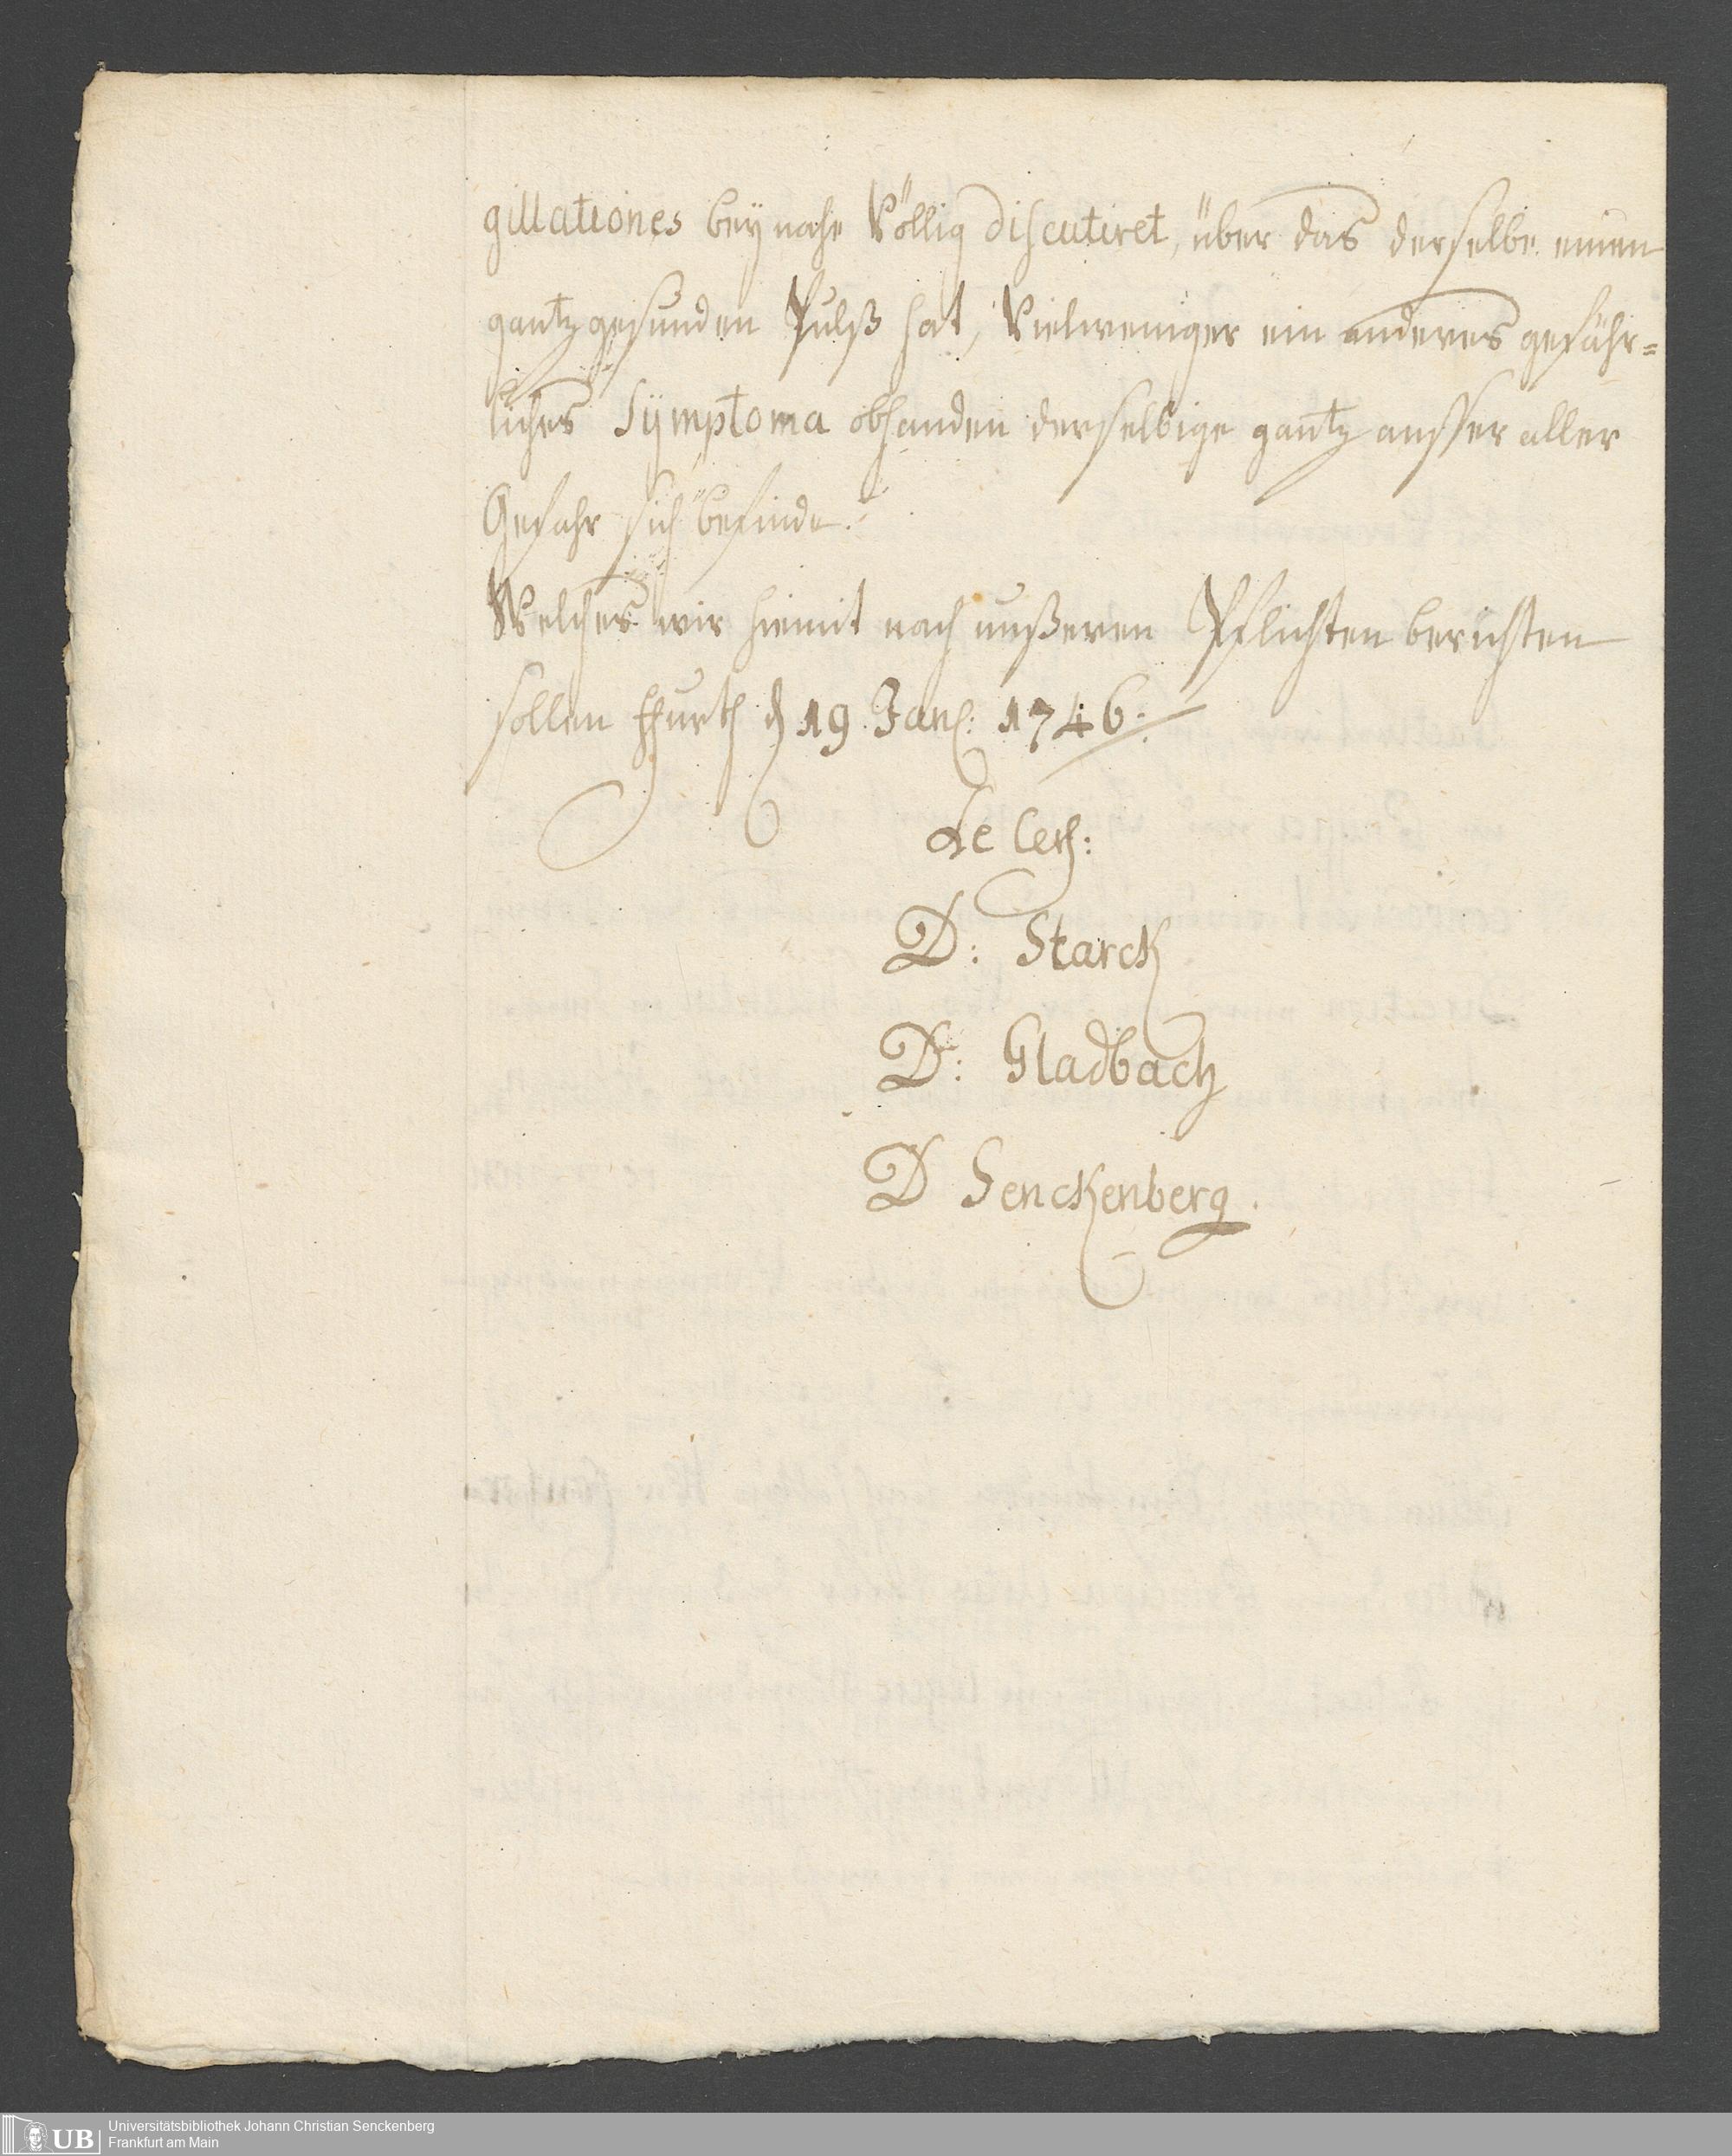 gillationes beÿ nahe Völlig discutiret, über das derselbe einen
gantz gesunden Pulß hat, Vielweniger ein anderes gefähr=
liches Sÿmptoma obhanden derselbige gantz ausser aller
Gefahr sich befinde.
Welches wir hiemit nach unßeren Pflichten berichten
sollen ffurth d 19 Jan: 1746.
D: Starck
D: Gladbach
D Senckenberg.
UB
Universitätsbibliothek Johann Christian Senckenberg
Frankfurt am Main